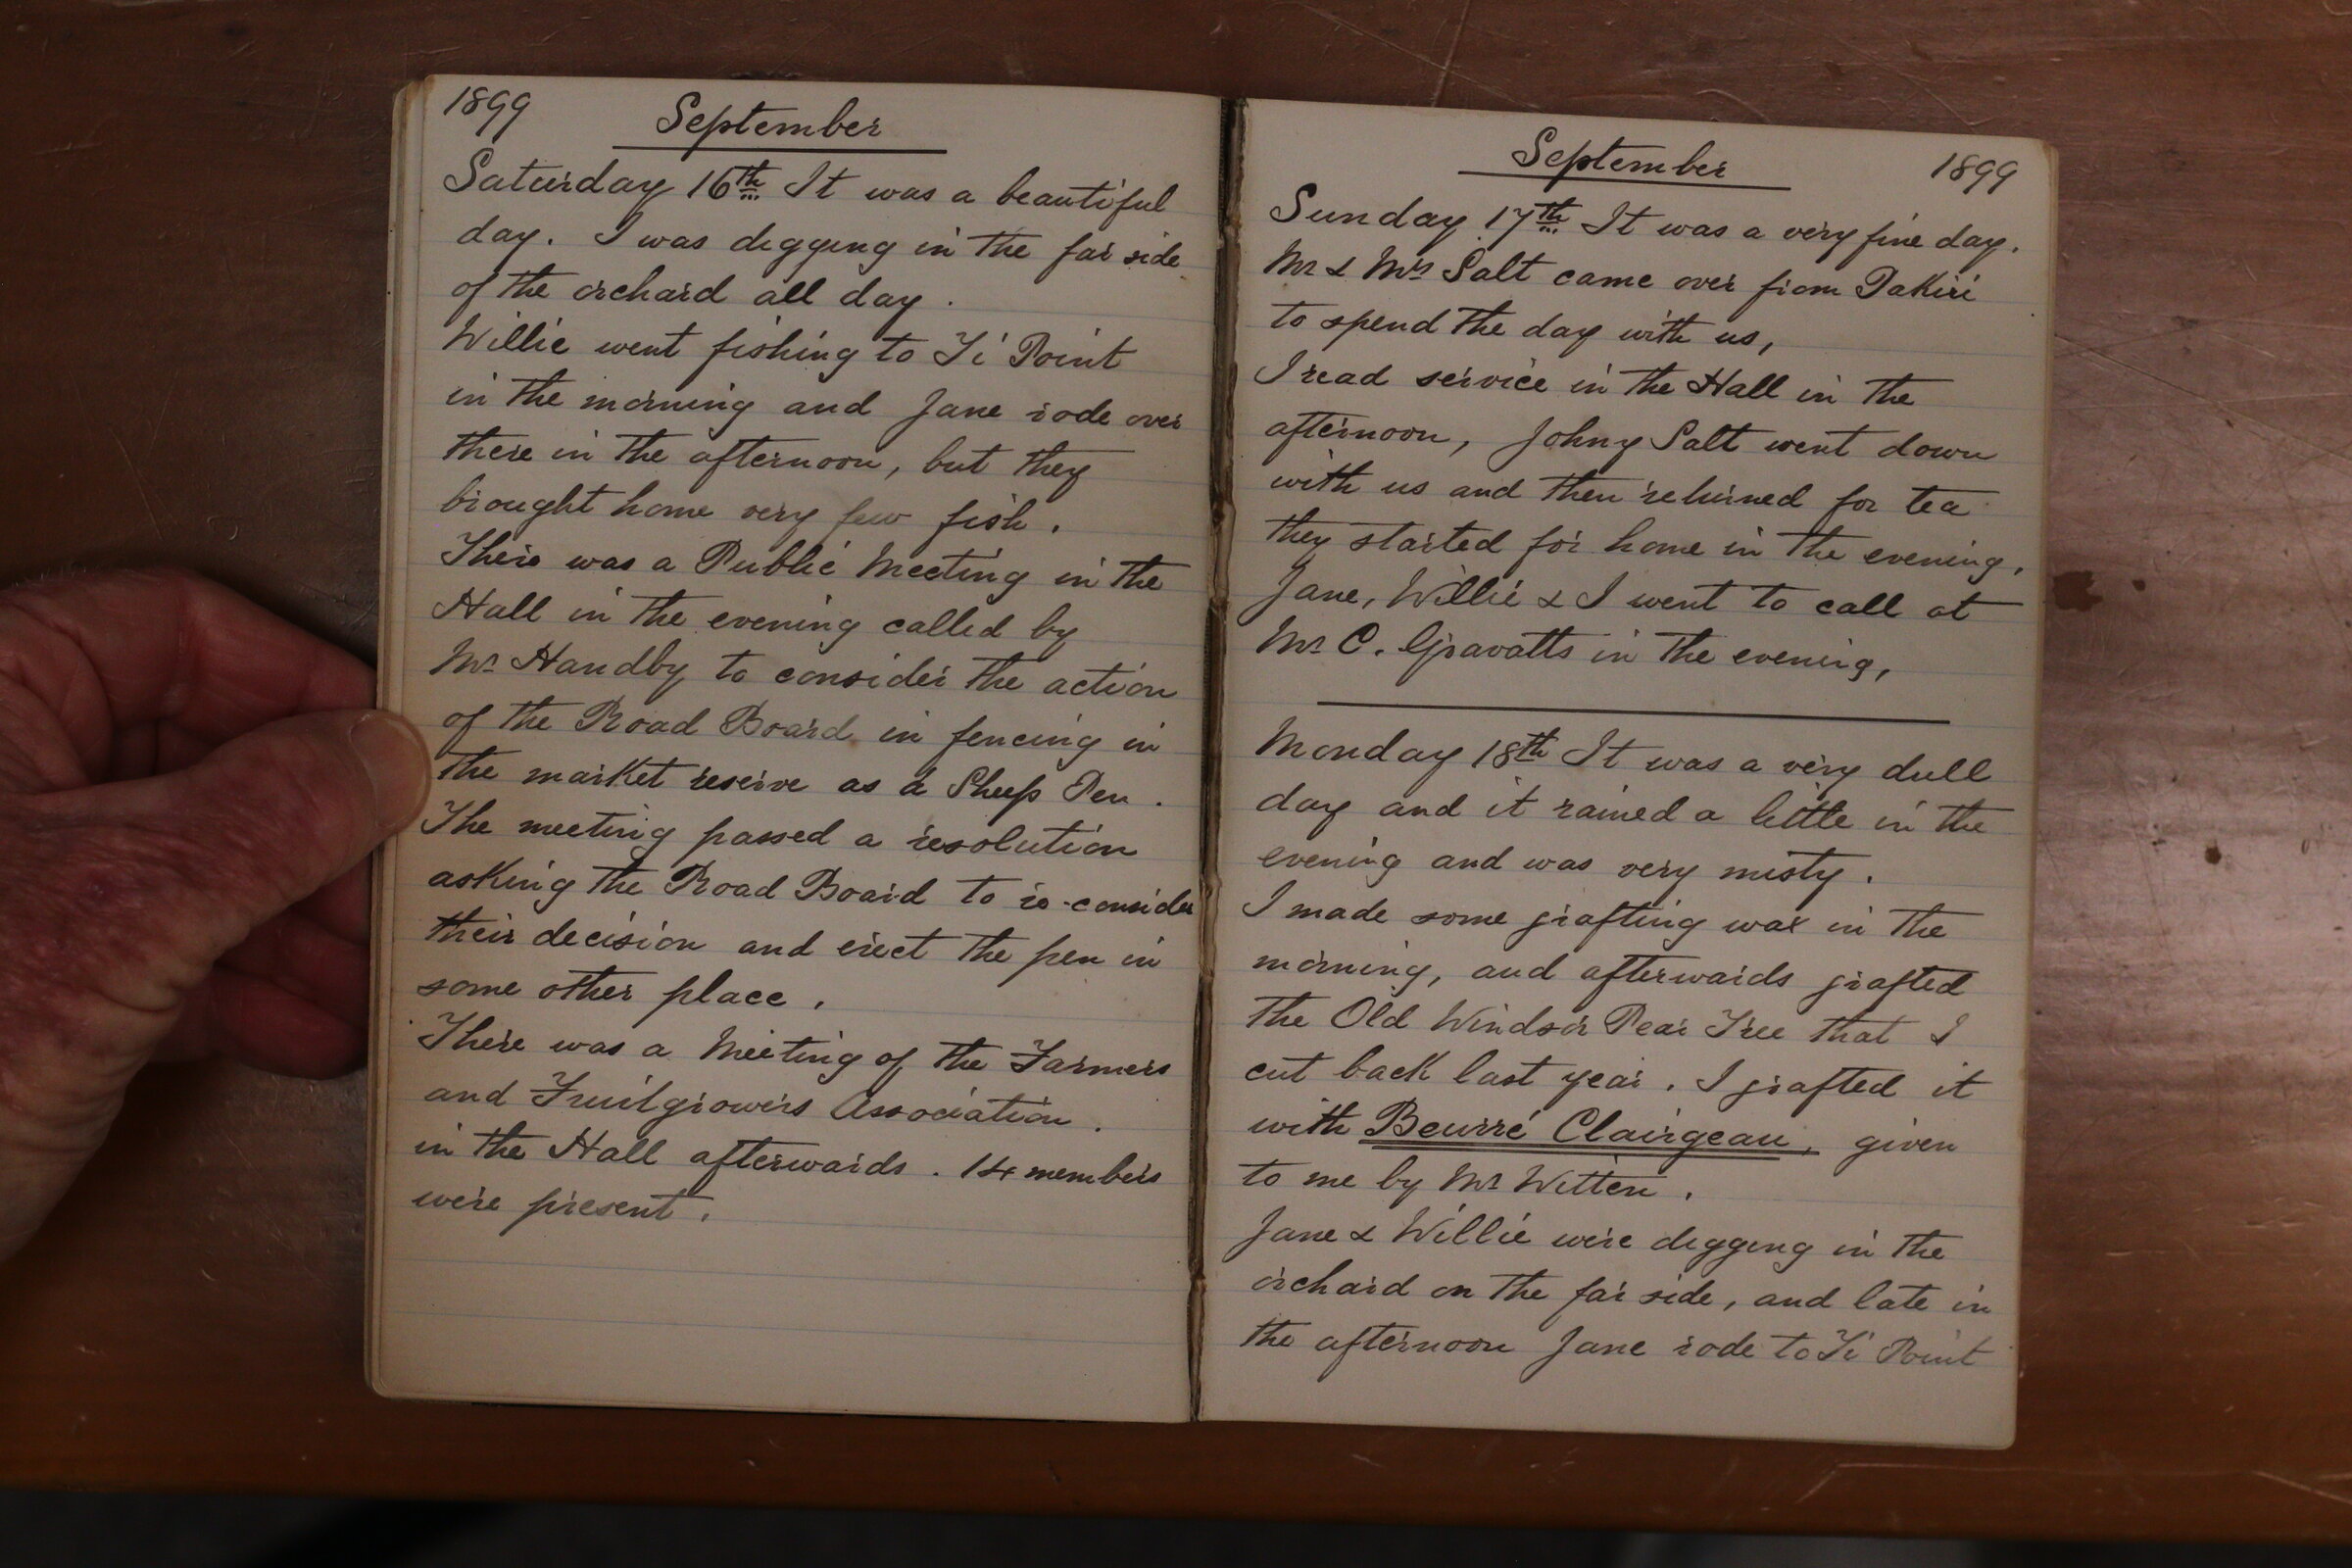 1899
September
Saturday 16th It was a beautiful
day. I was digging in the far side
of the orchard all day.
Willie went fishing to Ti Point
in the morning and Jane rode over
there in the afternoon, but they
brought home very few fish.
There was a Public Meeting in the
Hall in the evening called by
Mr Handby to consider the action
of the Road Board in fencing in
the market reserve as a Sheep Pen.
The meeting passed a resolution
asking the Road Board to re-consider
their decision and erect the pen in
some other place.
There was a Meeting of the Farmers
and Fruitgrowers Association.
in the Hall afterwards. 14 members
were present.
September 1899
Sunday 17th It was a very fine day.
Mr & Mrs Salt came over from Pakiri
to spend the day with us,
I read service in the Hall in the
afternoon, Johny Salt went down
with us and then returned for tea
they started for home in the evening.
Jane, Willie & I went to call at
Mr C. Gravatts in the evening,
Monday 18th It was a very dull
day and it rained a little in the
evening and was very misty.
I made some grafting wax in the
morning, and afterwards grafted
the Old Windsor Pear Tree that I
cut back last year. I grafted it
with Beurré Clairgeau, given
to me by Mr Witten.
Jane & Willie were digging in the
orchard on the far side, and late in
the afternoon Jane rode to Ti Point